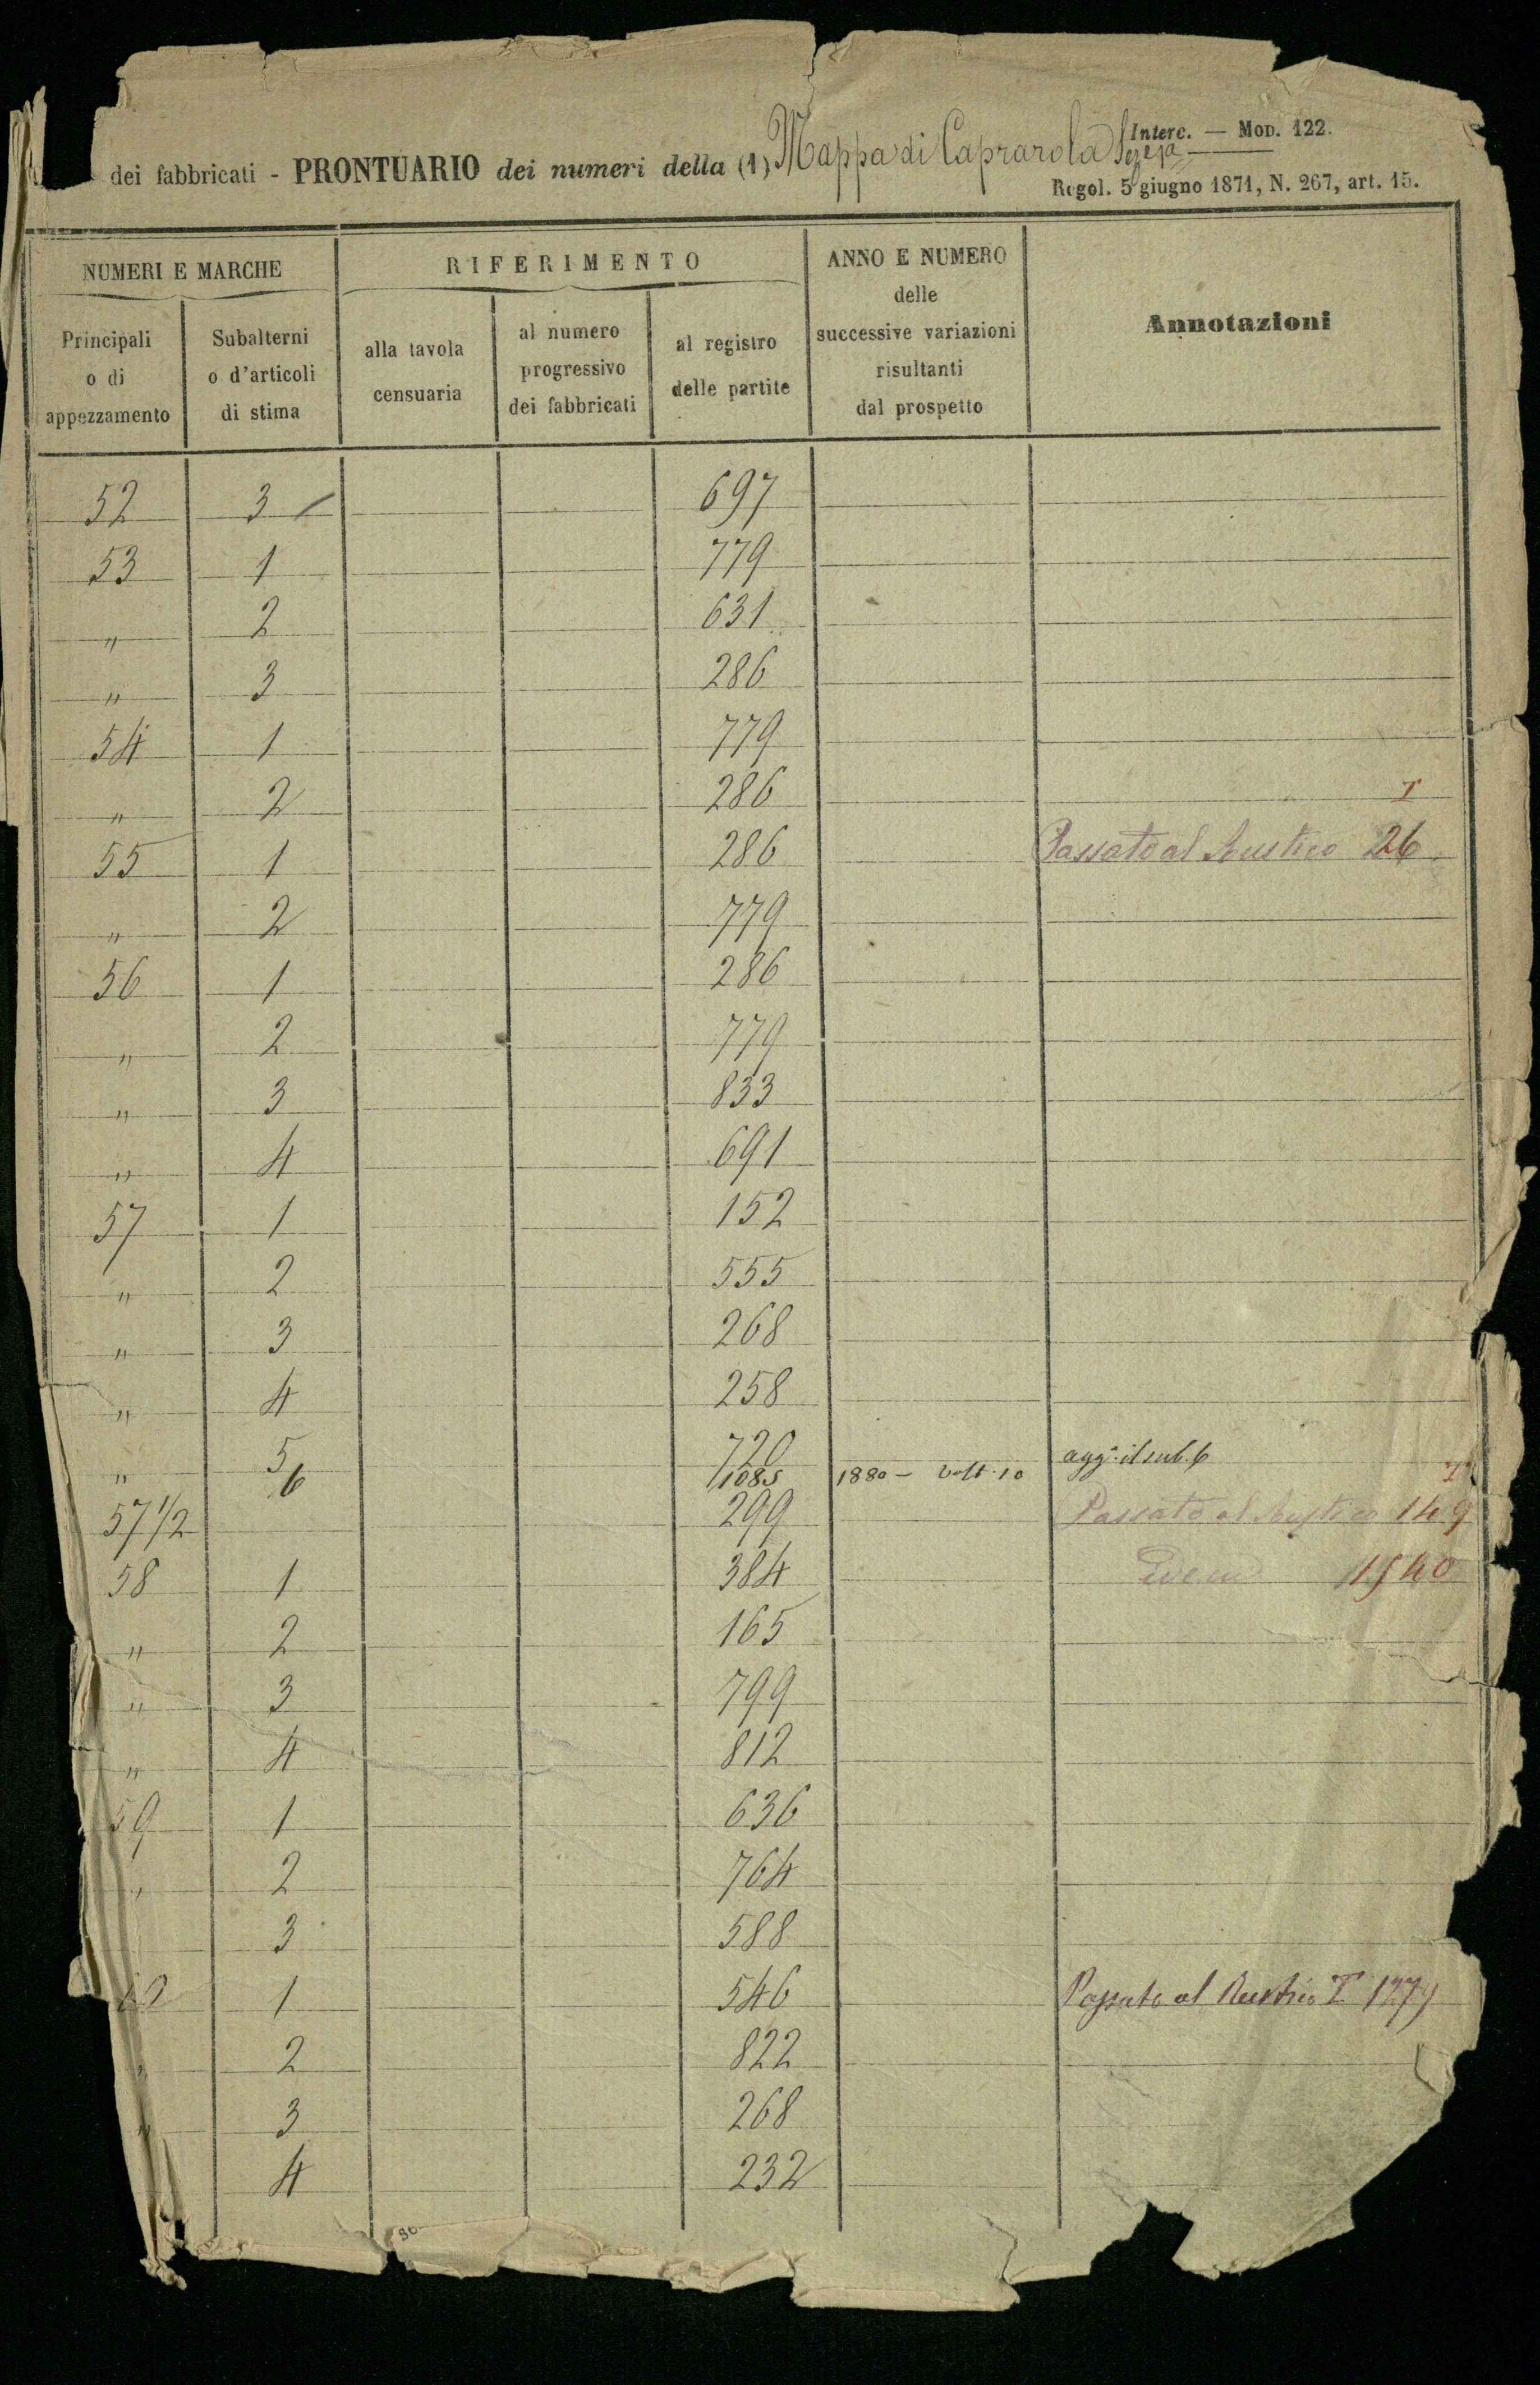 dei fabbricati - PRONTUARIO dei numeri della (1) Mappa di Caprarola
Interc. — Mod. 122.
Regol. 5 giugno 1871, N. 267, art. 15.
NUMERI E MARCHE RIFERIMENTO ANNO E NUMERO delle successive variazioni risultanti dal prospetto Annotazioni
Principali o di appezzamento Subalterni o d'articoli di stima alla tavola censuaria al numero progressivo dei fabbricati al registro delle partite
52 3 697
53 1 779
" 2 631
" 3 286
54 1 779
" 2 286 I
55 1 286 Passato al Rustico 26
" 2 779
56 1 286
" 2 779
" 3 833
" 4 691
57 1 152
" 2 555
" 3 268
" 4 258
" 5 720 agg. il sub. 6
6 1085 1880 — Volt. 10
57 1/2 299 Passato al Rustico 149
58 1 384 Idem 1540
" 2 165
" 3 799
" 4 812
59 1 636
" 2 764
3 588
60 1 546 Passato al Rustico T 1279
" 2 822
" 3 268
4 232